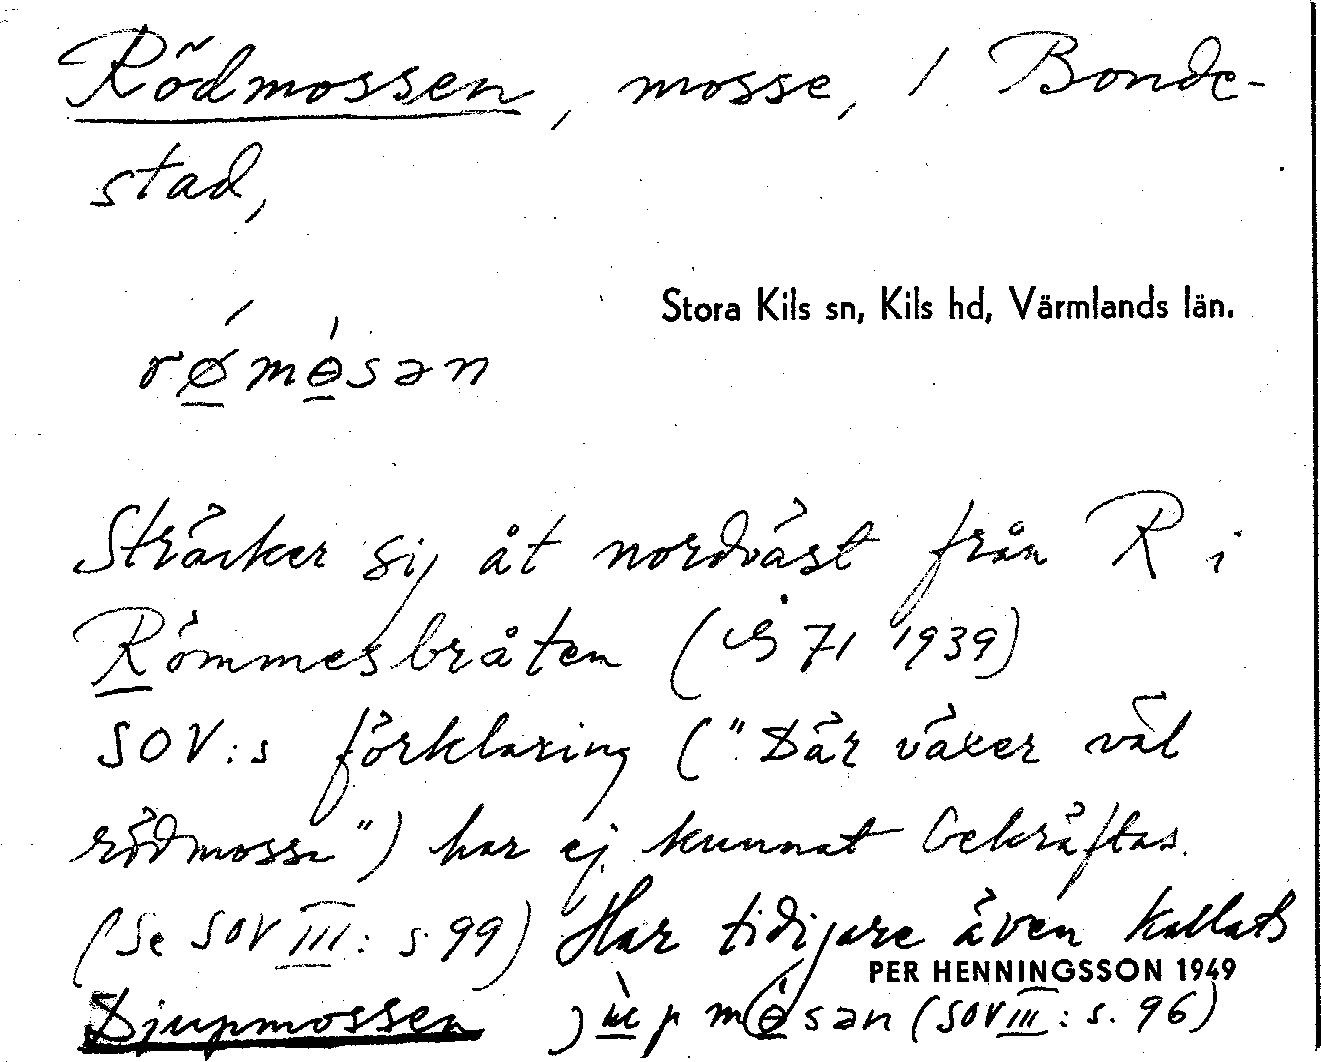 Rödmossen, mosse, / Bonde-
stad,
Stora Kils sn, Kils hd, Värmlands län.
rǿ̱mɵ̱́sən
Sträcker sig åt nordväst från R i
Römmesbråten ( 71 1939)
SOV:s förklaring ("Där växer väl
rödmosse") har ej kunnat bekräftas.
(Se SOV III: s. 99) Har tidigare även kallats
PER HENNINGSSON 1949
Djupmossen mɵ̱́sən (SOV III: s. 96)